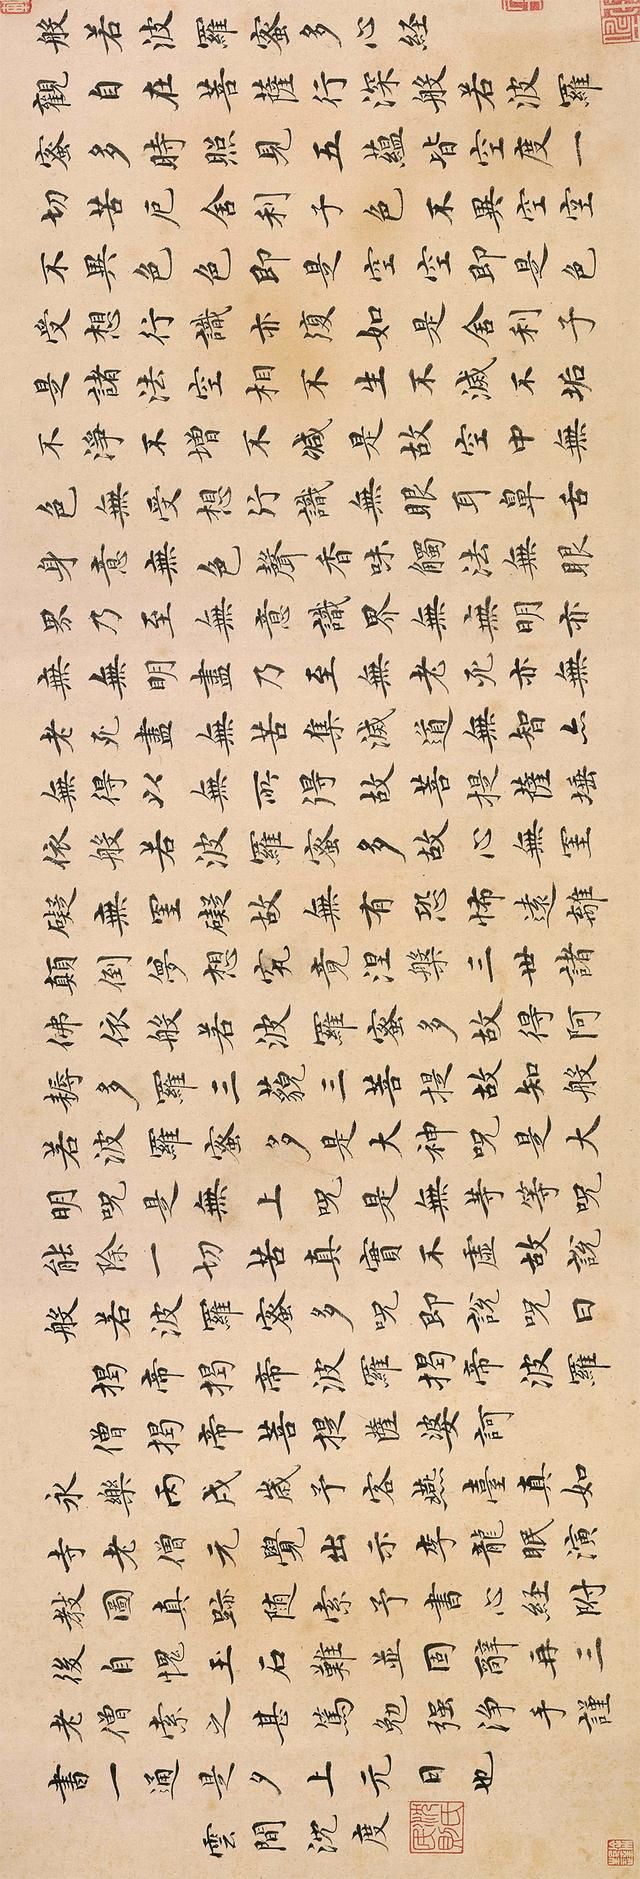 般若波羅蜜多心経
觀自在菩薩行深般若波羅
蜜多時照見五蘊皆空度一
切苦厄舍利子色不異空空
不異色色即是空空即是色
受想行識亦復如是舍利子
是諸法空相不生不滅不垢
不淨不增不減是故空中無
色無受想行識無眼耳鼻舌
身意無色聲香味觸法無眼
界乃至無意識界無無明亦
無無明盡乃至無老死亦無
老死盡無苦集滅道無智亦
無得以無所得故菩提薩埵
依般若波羅蜜多故心無罣
礙無罣礙故無有恐怖遠離
顛倒夢想究竟涅槃三世諸
佛依般若波羅蜜多故得阿
耨多羅三藐三菩提故知般
若波羅蜜多是大神呪是大
明呪是無上呪是無等等呪
能除一切苦真實不虛故說
般若波羅蜜多呪即說呪曰
揭帝揭帝波羅揭帝波羅
僧揭帝菩提薩婆訶
永樂丙戌歲予客燕臺真如
寺老僧元覺出示李龍眠演
教圖真跡随索予書心経附
後自愧玉石難並固辭再三
老僧索之甚篤勉强淨手謹
書一通是夕上元日也
雲間沈度